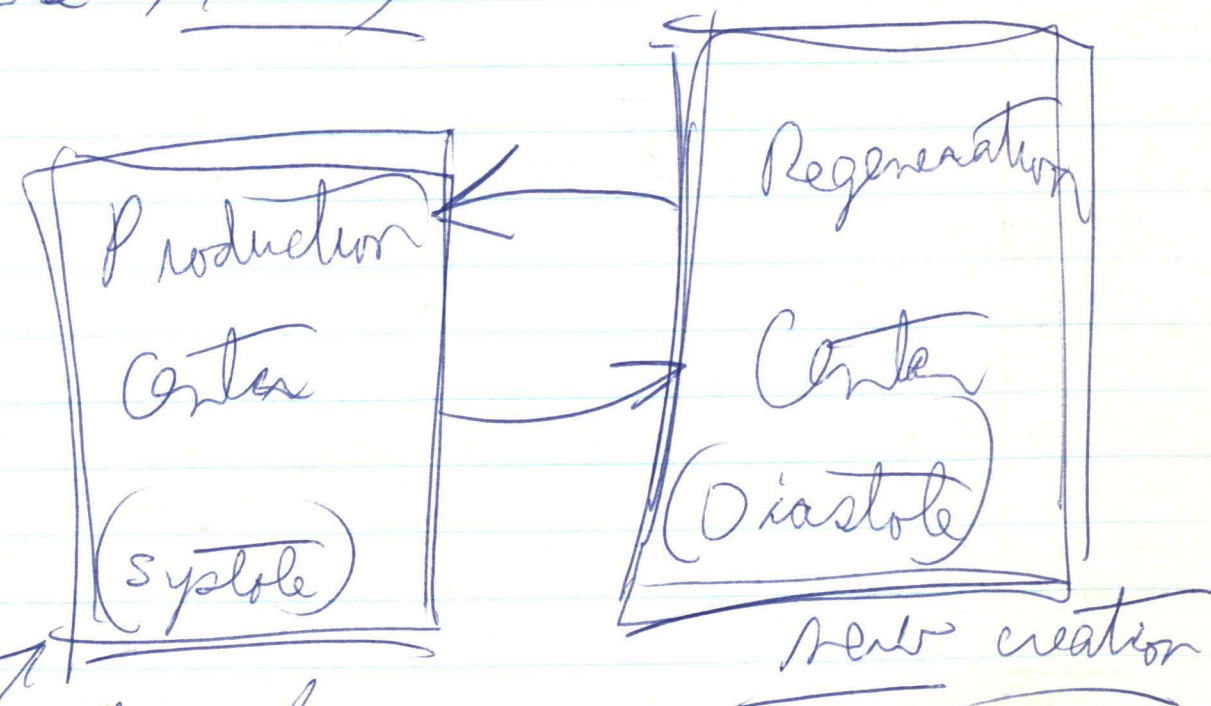 Production
Center
(Systole)
Regeneration
Center
(Diastole)
new creation